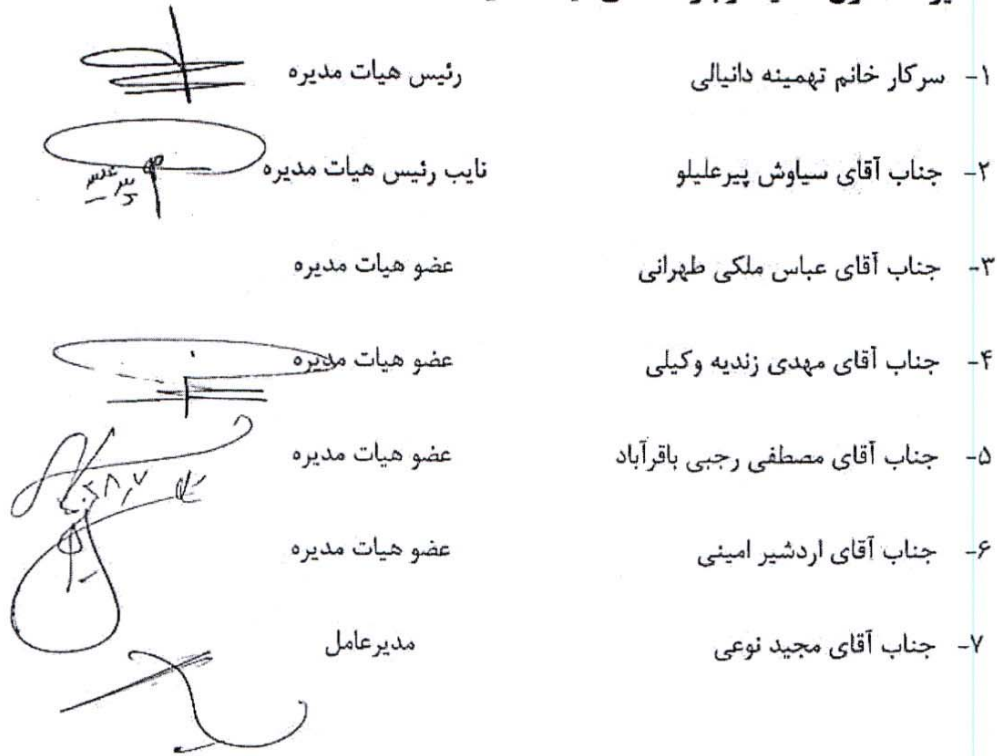 ۱- سرکار خانم تهمینه دانیالی رئیس هیات مدیره
۲- جناب آقای سیاوش پیرعلیلو نایب رئیس هیات مدیره
۳- جناب آقای عباس ملکی طهرانی عضو هیات مدیره
۴- جناب آقای مهدی زندیه وکیلی عضو هیات مدیره
۵- جناب آقای مصطفی رجبی باقرآباد عضو هیات مدیره
۶- جناب آقای اردشیر امینی عضو هیات مدیره
۷- جناب آقای مجید نوعی مدیرعامل